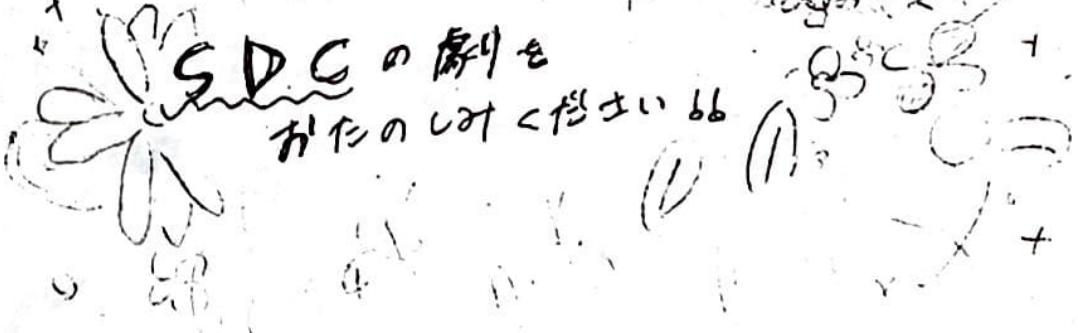 SDCの劇を
おたのしみください!!